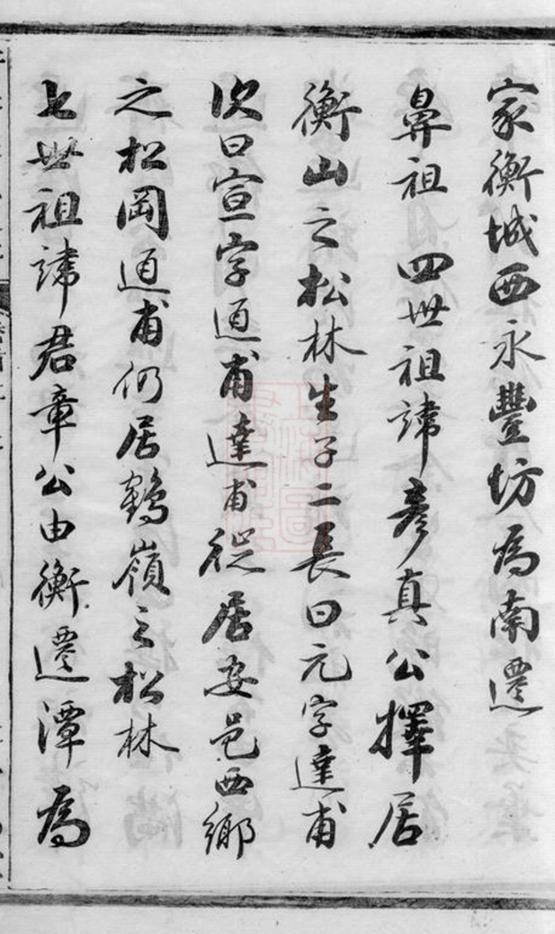 家衡城西永豐坊為南遷
鼻祖四世祖諱彥真公擇居
衡山之松林生子二長曰元字達甫
次曰宣字通甫達甫從居安邑西鄉
之松岡通甫仍居鶴嶺之松林
七世祖諱君章公由衡遷潭為